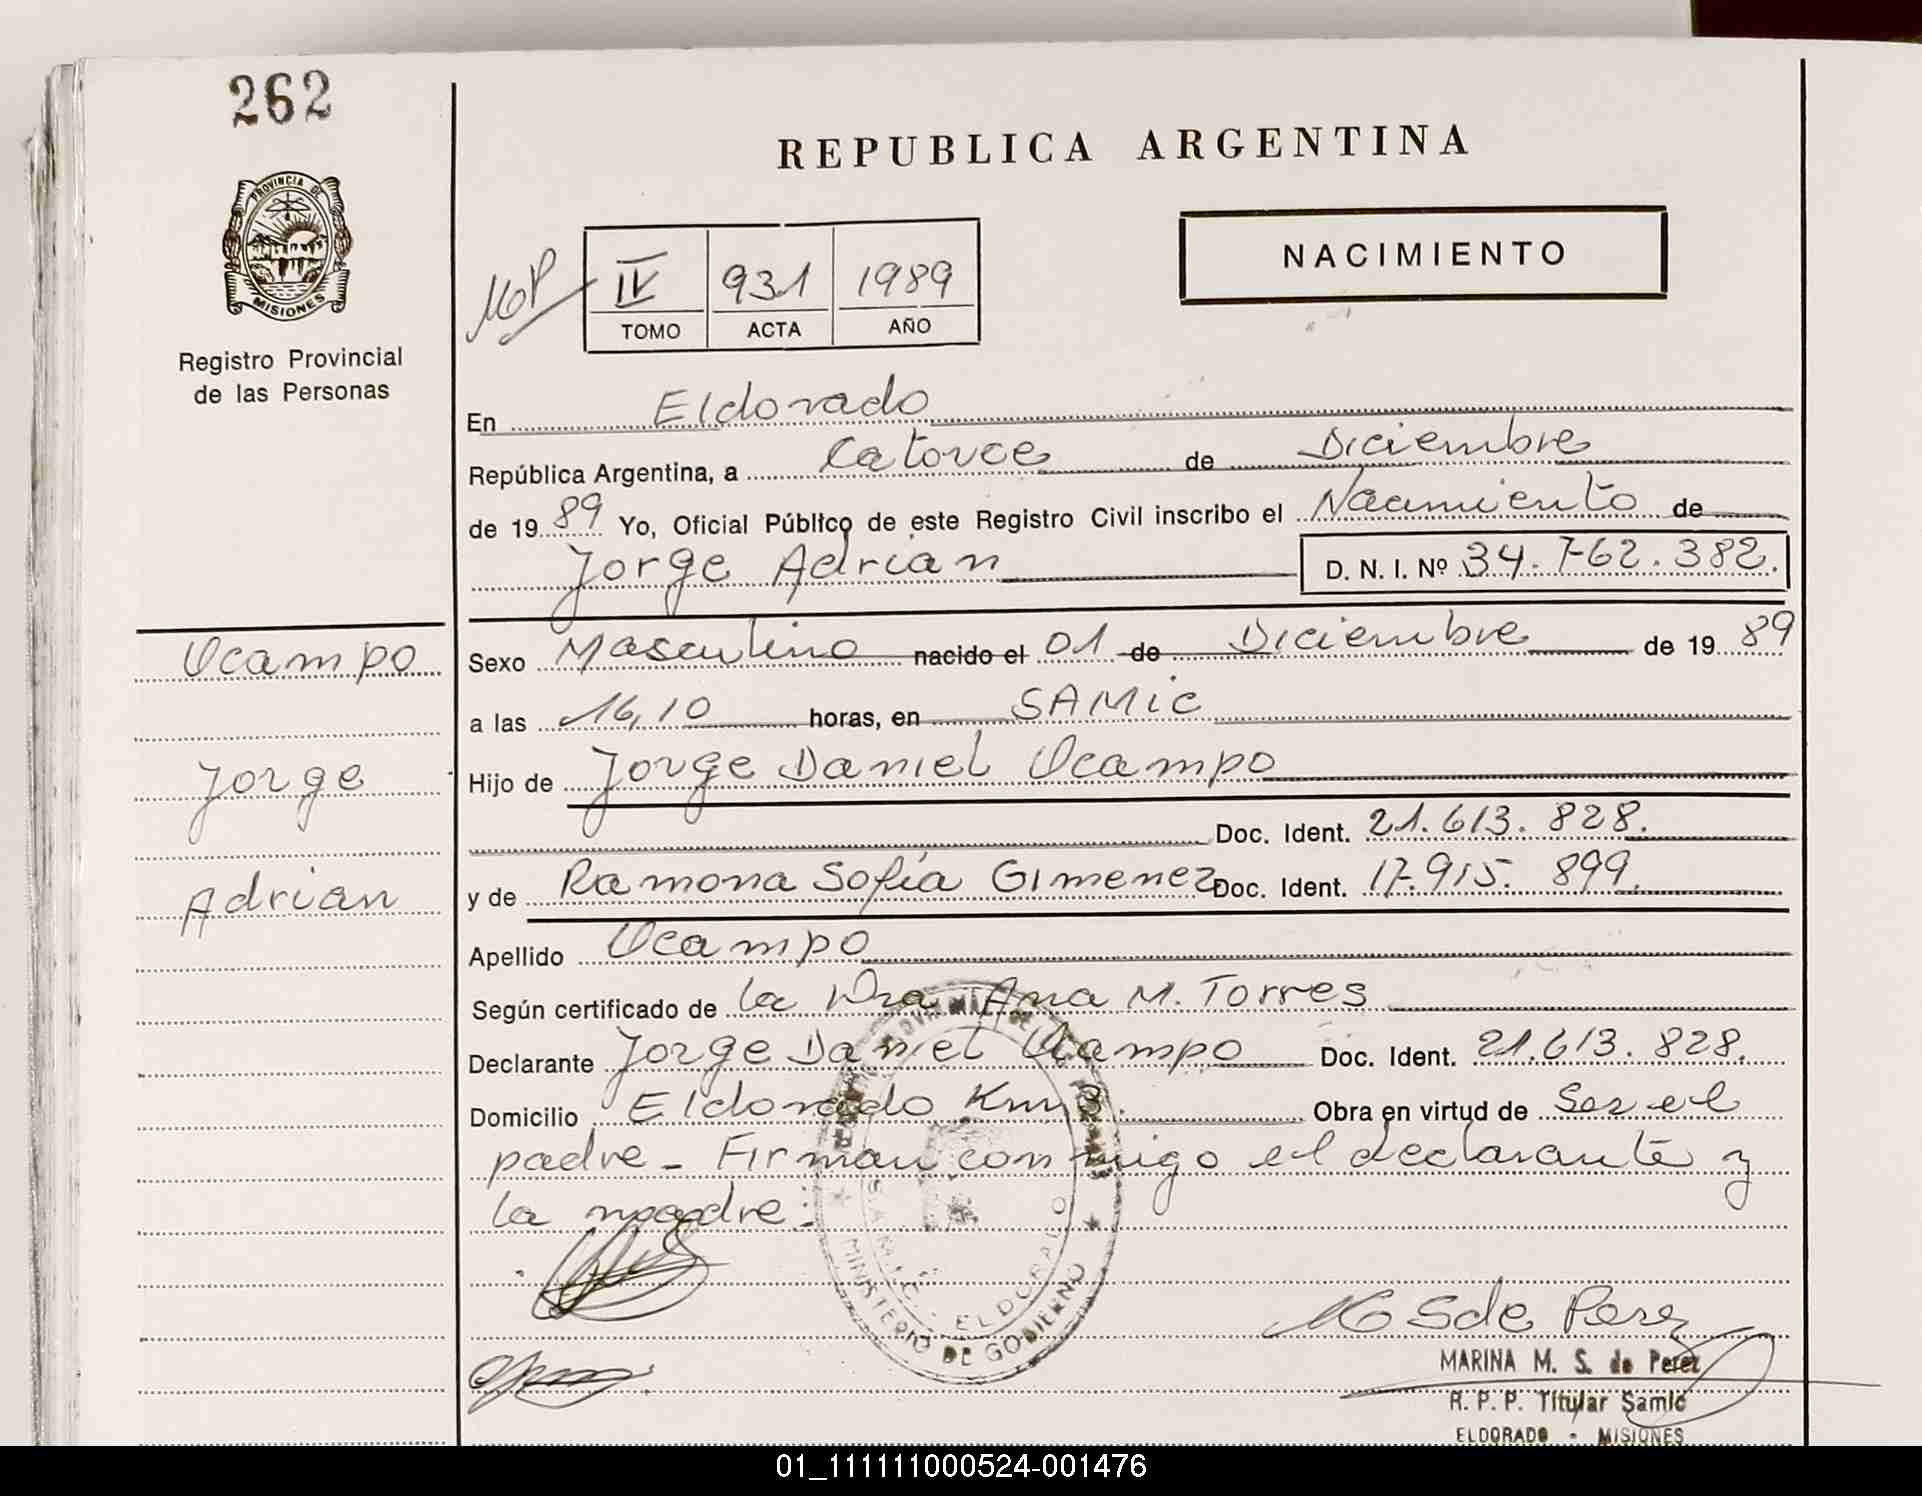 262
PROVINCIA DE
MISIONES
Registro Provincial
de las Personas
Ocampo
Jorge
Adrian
REPUBLICA ARGENTINA
NACIMIENTO
IV 931 1989
TOMO ACTA AÑO
En Eldorado
República Argentina, a Catorce de Diciembre
de 19 89 Yo, Oficial Público de este Registro Civil inscribo el Nacimiento de
Jorge Adrian D. N. I. Nº 34.762.382.
Sexo Masculino nacido el 01 de Diciembre de 19 89
a las 16,10 horas, en SAMIC
Hijo de Jorge Daniel Ocampo
Doc. Ident. 21.613.828.
y de Ramona Sofía Gimenez Doc. Ident. 17.915.899.
Apellido Ocampo
Según certificado de la Dra Ana M. Torres
Declarante Jorge Daniel Ocampo Doc. Ident. 21.613.828.
Domicilio Eldorado Km 8. Obra en virtud de Ser el
padre - Firman conmigo el declarante y
la madre:
S.A.M.I.C. - ELDORADO
MINISTERIO DE GOBIERNO
M S de Perez
MARINA M. S. de Perez
R. P. P. Titular Samic
ELDORADO - MISIONES
01_111111000524-001476